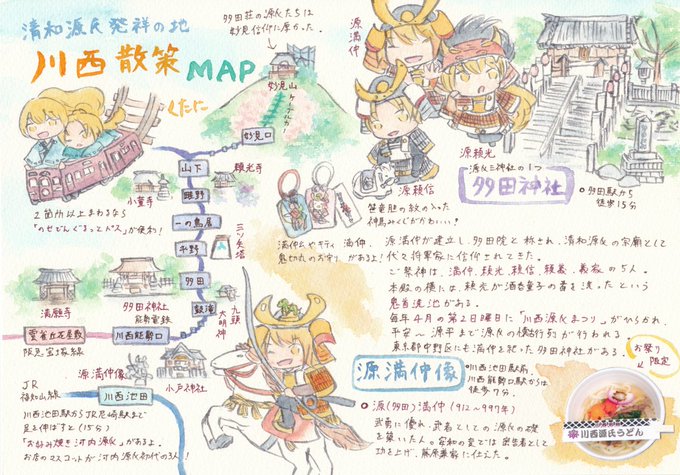 清和源氏発祥の地
川西散策MAP
くたに
多田荘の源氏たちは
妙見信仰に厚かった。
妙見山
ケーブルカー
妙見口
山下
頼光寺
畦野
一の鳥居
平野
三ツ矢塔
多田
鼓滝
九頭
大明神
川西能勢口
雲雀丘花屋敷
阪急宝塚線
小童寺
2箇所以上まわるなら
「のせでんぐるっとパス」が便利!
満願寺
多田神社と
能勢電鉄
源満仲像
小戸神社
JR
福知山線
川西池田
川西池田駅からJR尼崎駅まで
足を伸ばすと(15分)
「お好み焼き河内源氏」があるよ。
お店のマスコットが河内源氏初代の3人!
源満仲
源頼信
源頼光
源氏三神社の1つ
多田神社
●多田駅から
徒歩15分
笹竜胆の紋の入った
神馬みくじがかわいい!
満仲公やキティ満仲、
鬼切丸のお守りがあるよ!
源満仲が建立し、多田院と称され、清和源氏の宗廟として
代々将軍家に信仰されてきた。
ご祭神は、満仲、頼光、頼信、頼義、義家の5人。
本殿の横には、頼光が酒呑童子の首を洗ったという
鬼首洗池がある。
毎年4月の第2日曜日に「川西源氏まつり」がひらかれ、
平安〜源平まで源氏の懐古行列が行われる。
東京都中野区にも満仲を祀った多田神社がある。
お祭り
限定
源満仲像
●川西池田駅前。
川西能勢口駅からは
徒歩7分。
●源(多田)満仲(912〜997年)
武勇に優れ、武者としての源氏の礎
を築いた人。安和の変では密告者として
功を上げ、藤原兼家に仕えた。
川西源氏うどん